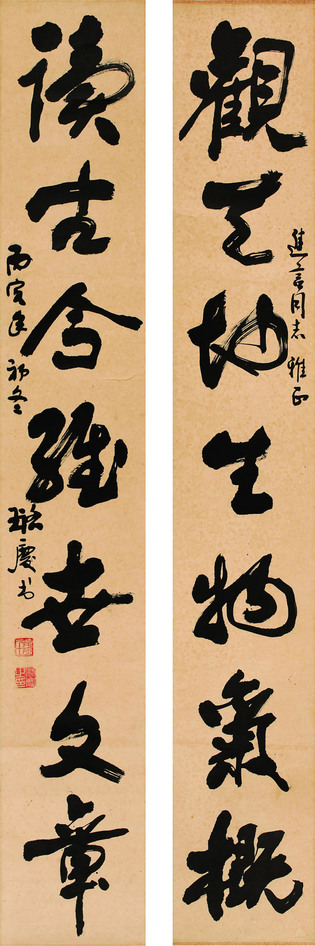 觀天地生物氣概
進京同志雅正
讀古今經世文章
丙寅年初冬
慶书